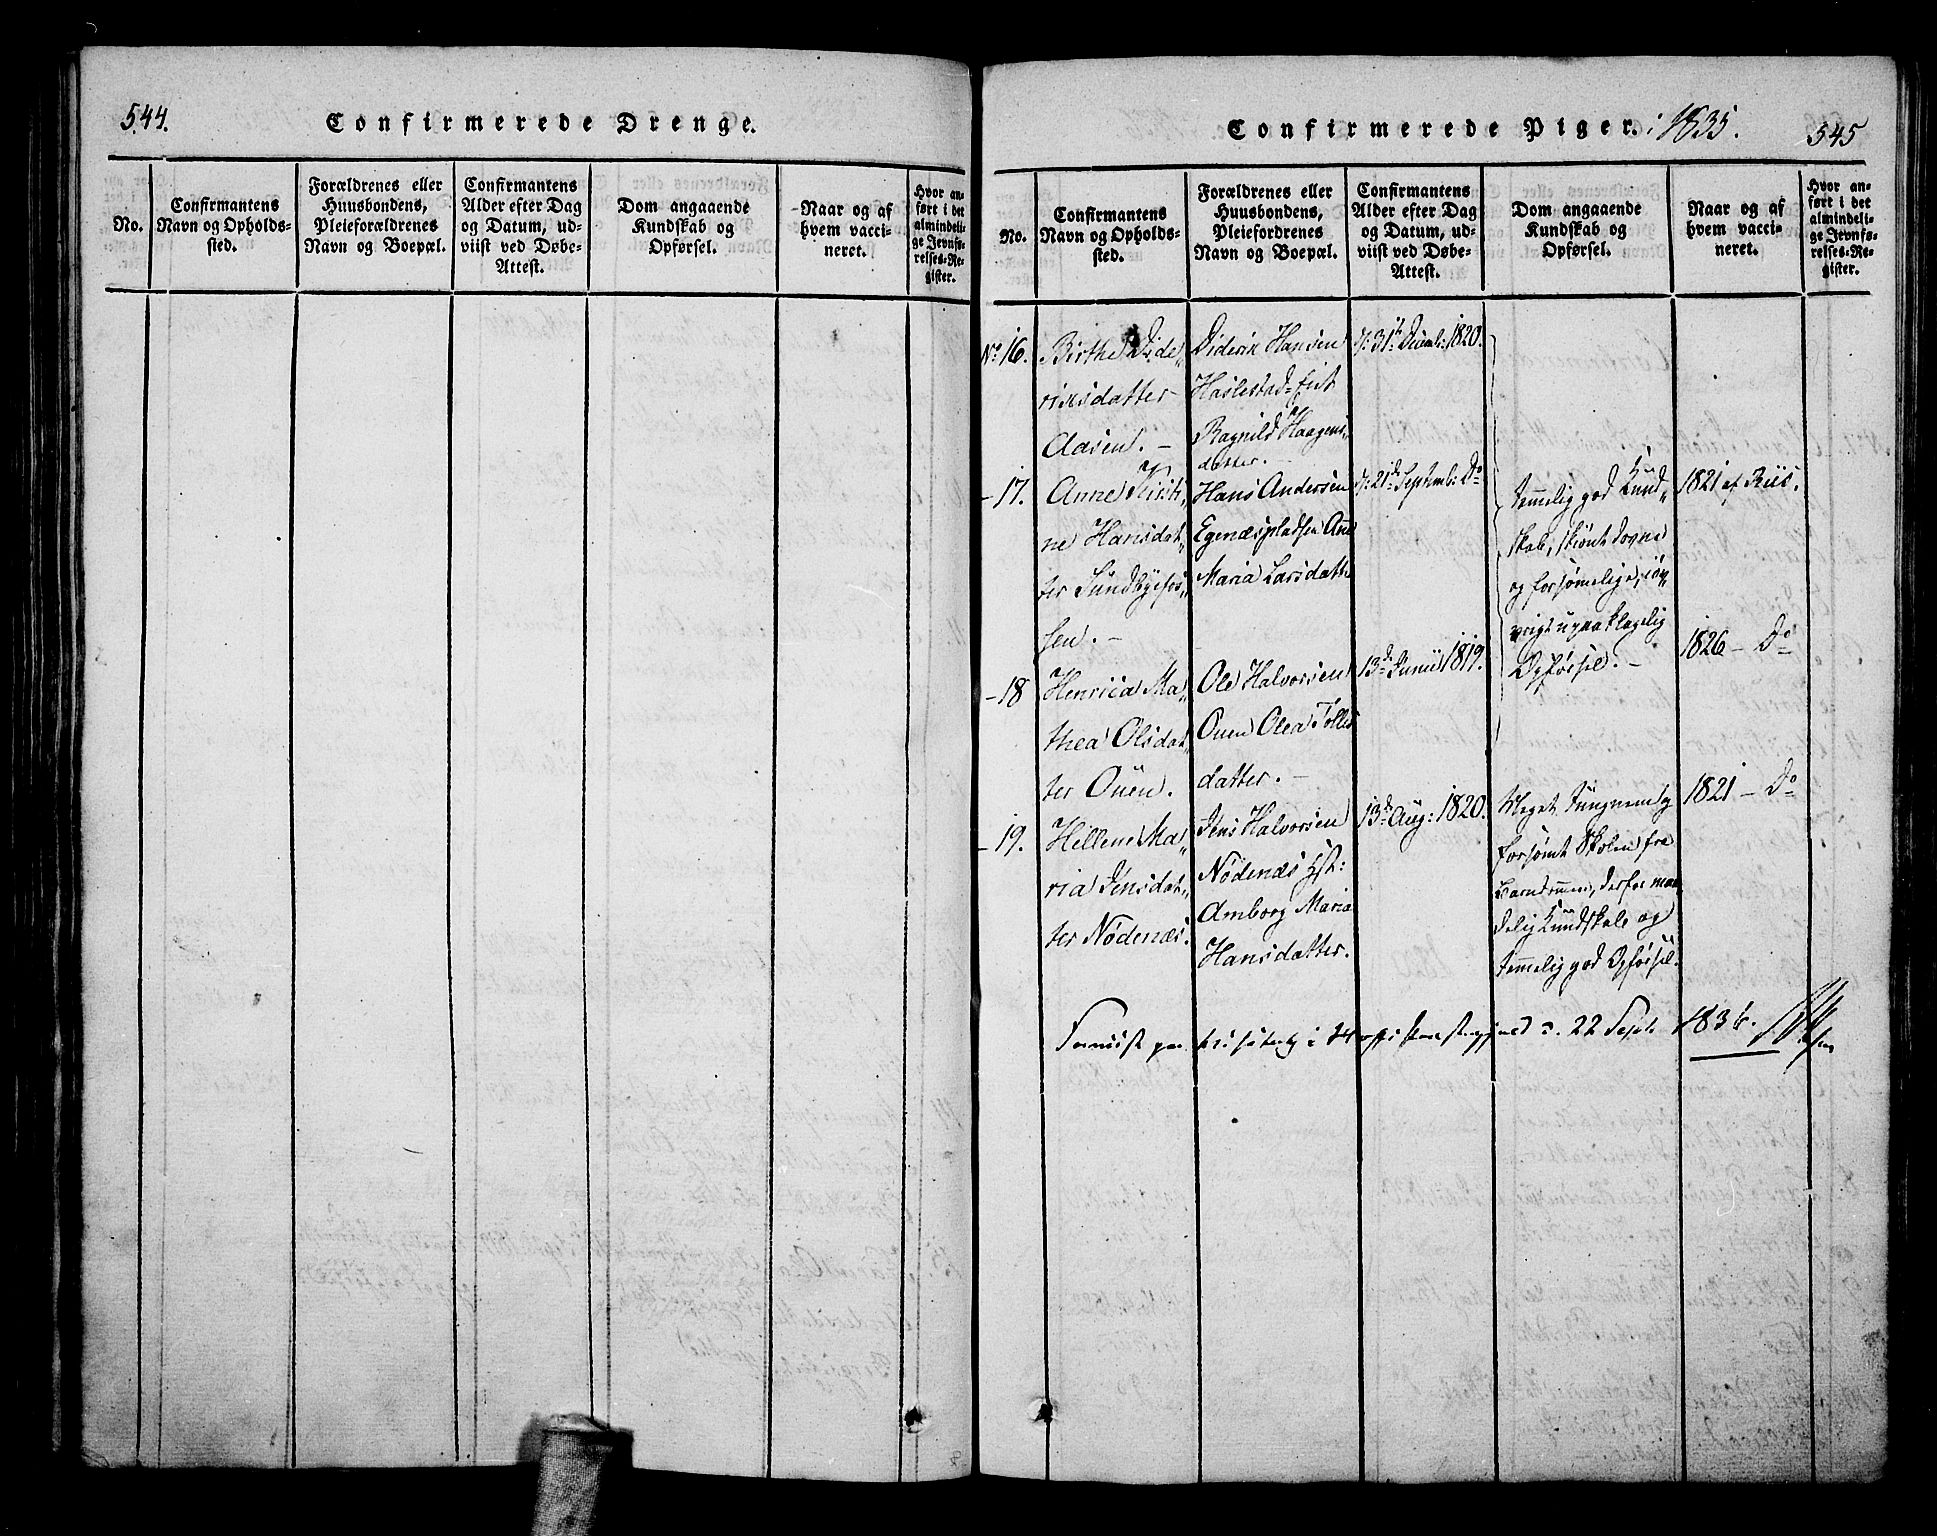 544.
Confirmerede Drenge.
No.
Confirmantens
Navn og Opholds-
sted.
Forældrenes eller
Huusbondens,
Pleieforældrenes
Navn og Boepæl.
Confirmantens
Alder efter Dag
og Datum, ud-
viist ved Døbe-
Attest.
Dom angaaende
Kundskab og
Opførsel.
Naar og af
hvem vacci-
neret.
Hvor an-
ført i det
almindeli-
ge Jevnfø-
relses-Re-
gister.
Confirmerede Piger. i 1835.
545
No.
Confirmantens
Navn og Opholds-
sted.
Forældrenes eller
Huusbondens,
Pleiefordrenes
Navn og Boepæl.
Confirmantens
Alder efter Dag
og Datum, ud-
viist ved Døbe-
Attest.
Dom angaaende
Kundskab og
Opførsel.
Naar og af
hvem vacci-
neret.
Hvor an-
ført i det
almindeli-
ge Jevnfø-
relses-Re-
gister.
No 16.
Birthe Dide„
riksdatter
Aasen. –
Diderik Hansen
Haslestad-
Ragnild Haagens„
datter. –
31te Decemb: 1820.
– 17.
Anne Kirsti„
ne Hansdat„
ter Sundbyefos„
sen. –
Hans Andersen
Egenæspladsen Ane
Maria Larsdatter
21de Septemb: Do
temmelig god Kund„
skab, skiønt dovne
og forsømelige, iøv„
vrigt upaaklagelig
Opførsel. –
1821 af Riis.
– 18
Henrica Ma„
thea Olsdat„
ter Ouen.
Ole Halvorsen
Ouen Olea Tolles
datter. –
13de Junii 1819.
1826 – Do
– 19.
Hellene Ma„
ria Jensdat„
ter Nödenæs.
Jens Halvorsen
Nödenæs Hst:
Amborg Maria
Hansdatter.
13de Aug: 1820.
Meget tungnem og
forsømt Skolen fra
Barndommen, derfor maa
delig Kundskab og
temmelig god Opførsel.
1821 – Do
Foreviist paa i 22 Sept 1836.